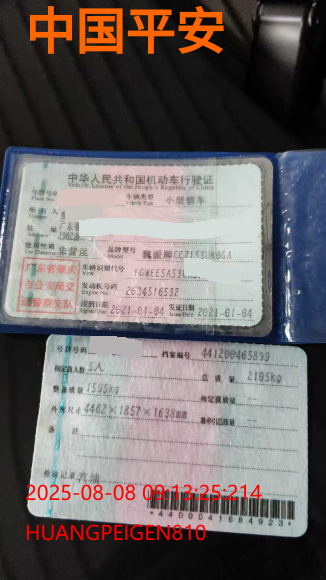 中国平安
中华人民共和国机动车行驶证
Vehicle License of the People's Republic of China
号牌号码
车辆类型 小型轿车
Vehicle Type
所有人
住址
使用性质 非营运 品牌型号
Model
车辆识别代号
VIN
发动机号码 2634516532
Engine No.
注册日期 2021-01-04 发证日期 2021-01-04
Issue Date
广东省肇庆
市公安局交
通警察支队
号牌号码 档案编号 441200465899
核定载人数 5人 总质量 2195kg
整备质量 1595kg 核定载质量 --
外廓尺寸 4462×1857×1638mm 准牵引总质量 --
备注
检验记录 汽油
2025-08-08 09:13:25:214
*4400041684923*
HUANGPEIGEN810